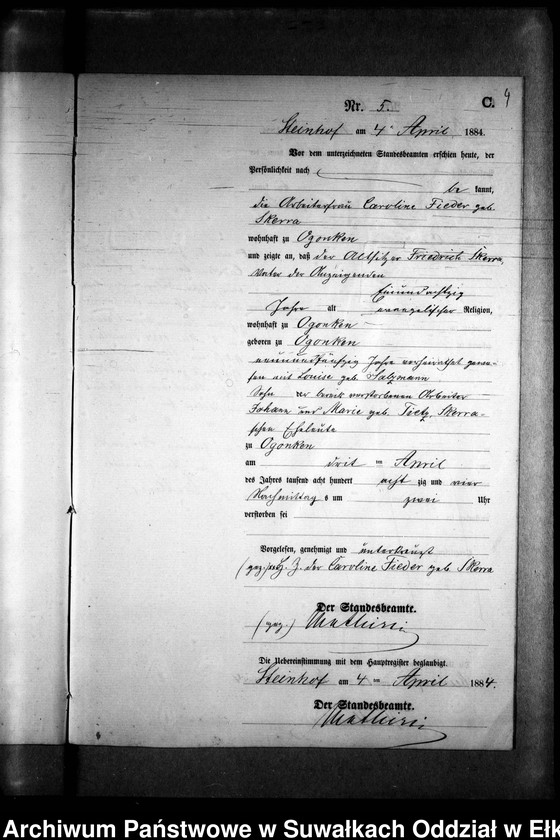 Nr. 5.
C. 4
Steinhof am 4ᵗ April 1884.
Vor dem unterzeichneten Standesbeamten erschien heute, der
Persönlichkeit nach
be kannt,
die Arbeiterfrau Caroline Fieder geb.
Skerra
wohnhaft zu Ogonken
und zeigte an, daß der Altsitzer Friedrich Skerra,
Vater der Anzeigenden
Einundachtzig
Jahre alt evangelischer Religion,
wohnhaft zu Ogonken
geboren zu Ogonken
neunundfünfzig Jahre verheirathet gewe-
sen mit Louise geb. Salzmann
Sohn der bereits verstorbenen Arbeiter
Johann und Marie geb. Tietz, Skerra-
schen Eheleute
zu Ogonken
am drit ten April
des Jahres tausend acht hundert acht zig und vier
Nachmittag s um zwei Uhr
verstorben sei
Vorgelesen, genehmigt und unterkreuzt
(gez.) H. Z. der Caroline Fieder geb. Skerra
Der Standesbeamte.
(gez.)
Die Uebereinstimmung mit dem Hauptregister beglaubigt.
Steinhof am 4 ten April 1884.
Der Standesbeamte.
Archiwum Państwowe w Suwałkach Oddział w Ełk